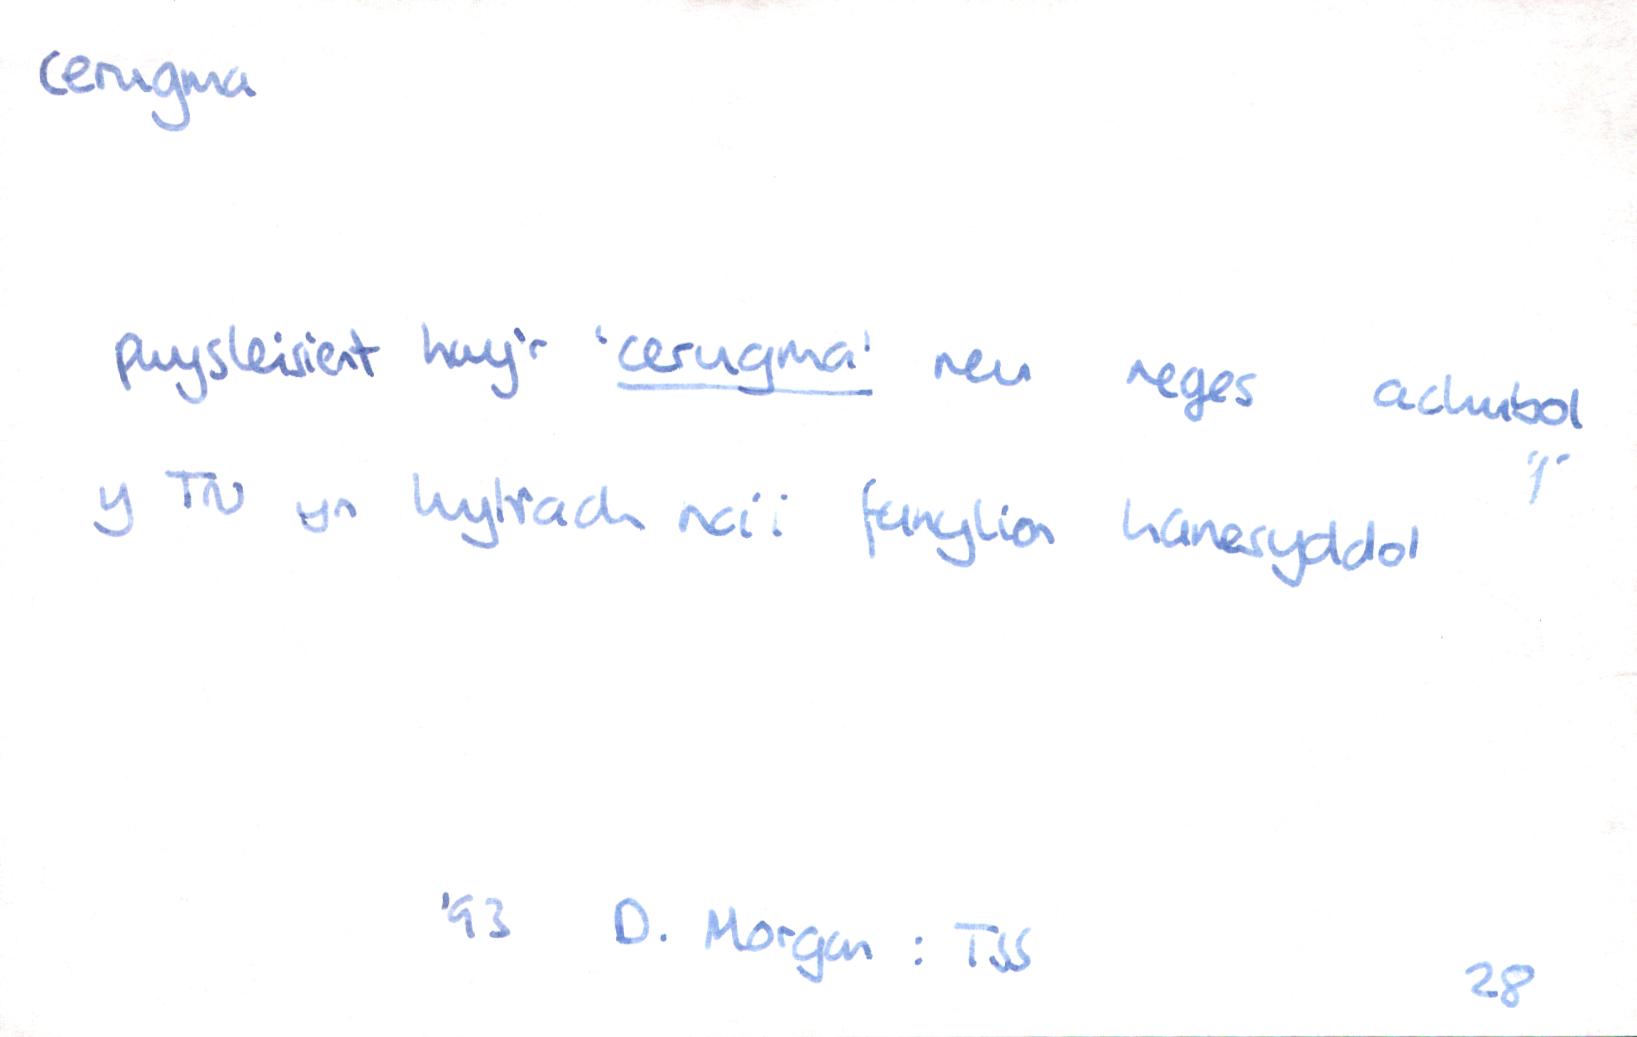 cerugma
pwysleisient hwy'r 'cerugma' neu neges achubol
y TN yn hytrach na'i fanylion hanesyddol
'93 D. Morgan : TSS
28